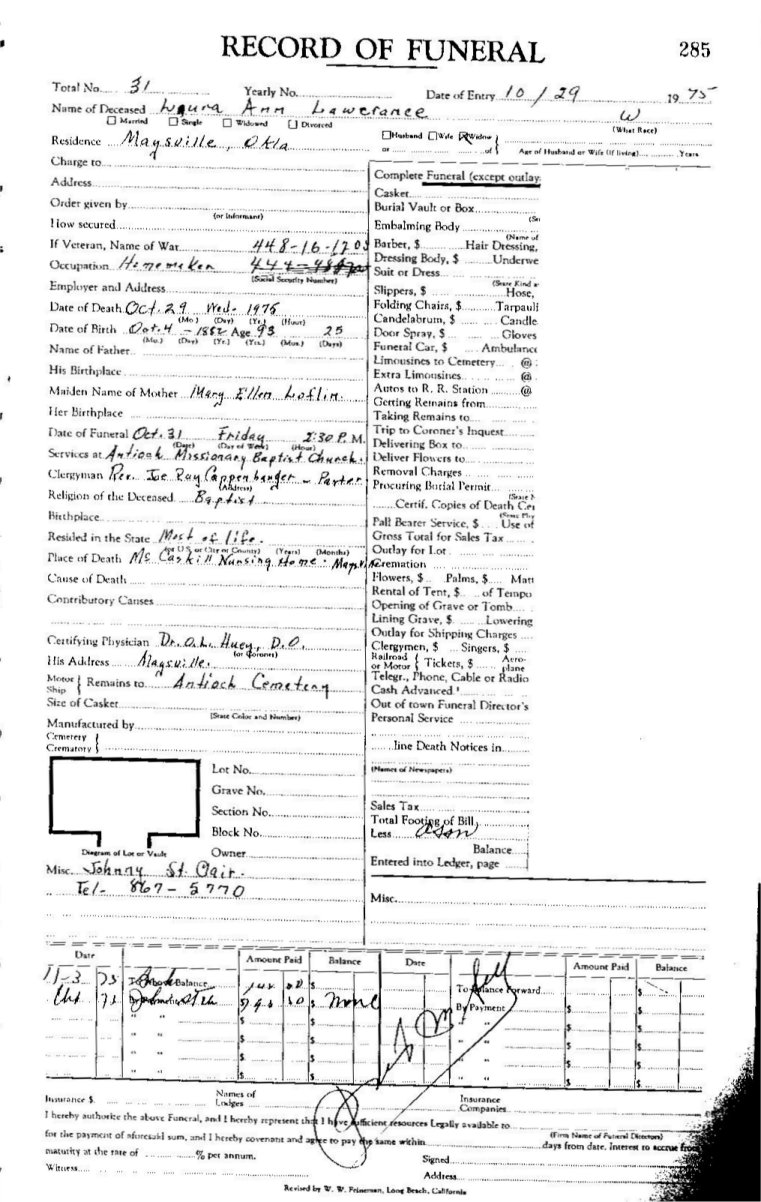 RECORD OF FUNERAL
285
Total No. 31 Yearly No. Date of Entry 10 / 29 1975
Name of Deceased Laura Ann Lawerance W
Married Single Widowed Divorced Husband Wife Widow (What Race)
Residence Maysville, Okla or of Age of Husband or Wife (if living) Years
Charge to
Address
Order given by
(or Informant)
How secured
If Veteran, Name of War 448-16-1705
Occupation Homemaker
(Social Security Number)
Employer and Address
Date of Death Oct. 29 Wed. 1975
(Mo.) (Day) (Yr.) (Hour)
Date of Birth Oct. 4 - 1882 Age 93 25
(Mo.) (Day) (Yr.) (Yrs.) (Mos.) (Days)
Name of Father
His Birthplace
Maiden Name of Mother Mary Ellen Loflin
Her Birthplace
Date of Funeral Oct. 31 Friday 2:30 P.M.
(Date) (Day of Week) (Hour)
Services at Antioch Missionary Baptist Church.
Clergyman Rev. Joe Ray
(Address)
Religion of the Deceased Baptist
Birthplace
Resided in the State Most of life.
(or U.S. or City or County) (Years) (Months)
Place of Death McCaskill Nursing Home
Cause of Death
Contributory Causes
Certifying Physician Dr. O.L. Huey, D.O.
(or Coroner)
His Address Maysville.
Motor
Ship Remains to Antioch Cemetery
Size of Casket
(State Color and Number)
Manufactured by
Cemetery
Crematory
Lot No.
Grave No.
Section No.
Block No.
Diagram of Lot or Vault Owner
Misc. Johnny St. Clair.
Tel- 867-5770
Complete Funeral (except outlay
Casket
Burial Vault or Box
Embalming Body
(Name of
Barber, $ Hair Dressing,
Dressing Body, $ Underwe
Suit or Dress
(State Kind a
Slippers, $ Hose,
Folding Chairs, $ Tarpauli
Candelabrum, $ Candle
Door Spray, $ Gloves
Funeral Car, $ Ambulance
Limousines to Cemetery @
Extra Limousines @
Autos to R. R. Station @
Getting Remains from
Taking Remains to
Trip to Coroner's Inquest
Delivering Box to
Deliver Flowers to
Removal Charges
Procuring Burial Permit
(State N
Certif. Copies of Death Cer
Pall Bearer Service, $ Use of
Gross Total for Sales Tax
Outlay for Lot
Cremation
Flowers, $ Palms, $ Matt
Rental of Tent, $ of Tempo
Opening of Grave or Tomb
Lining Grave, $ Lowering
Outlay for Shipping Charges
Clergymen, $ Singers, $
Railroad
or Motor Tickets, $ Aero-
plane
Telegr., Phone, Cable or Radio
Cash Advanced
Out of town Funeral Director's
Personal Service
line Death Notices in
(Names of Newspapers)
Sales Tax
Total Footing of Bill
Less
Balance
Entered into Ledger, page
Misc.
Date Amount Paid Balance Date Amount Paid Balance
11-3 75 Balance $ To Balance Forward $
75 $ None By Payment $ $
" " $ $ " " $ $
" " $ $ " " $ $
" " $ $ " " $ $
" " $ $ " " $ $
Insurance $ Names of
Lodges Insurance
Companies
I hereby authorize the above Funeral, and I hereby represent that I have sufficient resources Legally available to
(Firm Name of Funeral Directors)
for the payment of aforesaid sum, and I hereby covenant and agree to pay the same within days from date. Interest to accrue from
maturity at the rate of % per annum. Signed
Witness Address
Revised by W. W. Feineman, Long Beach, California